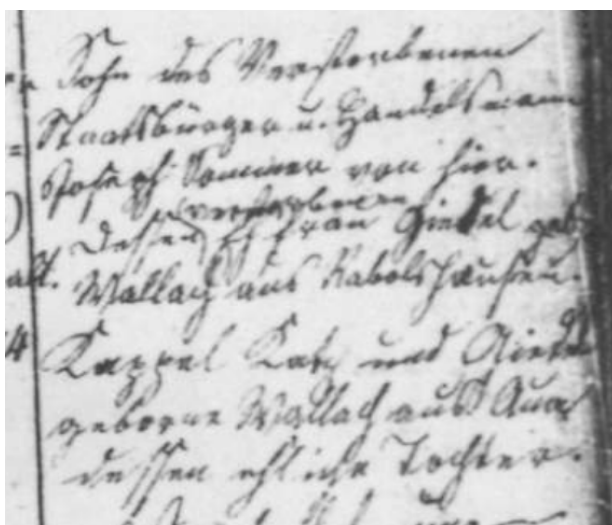 Sohn des Verstorbenen
Staatsbürger u. Handelsmann
Joseph Sommer von hier.
verstorbenen
dessen Frau Giedel geb.
alt. Wallach aus Rabolshausen.
4 Kappel Katz und Giedel
geborne Wallach aus Aua
dessen ehliche Tochter.